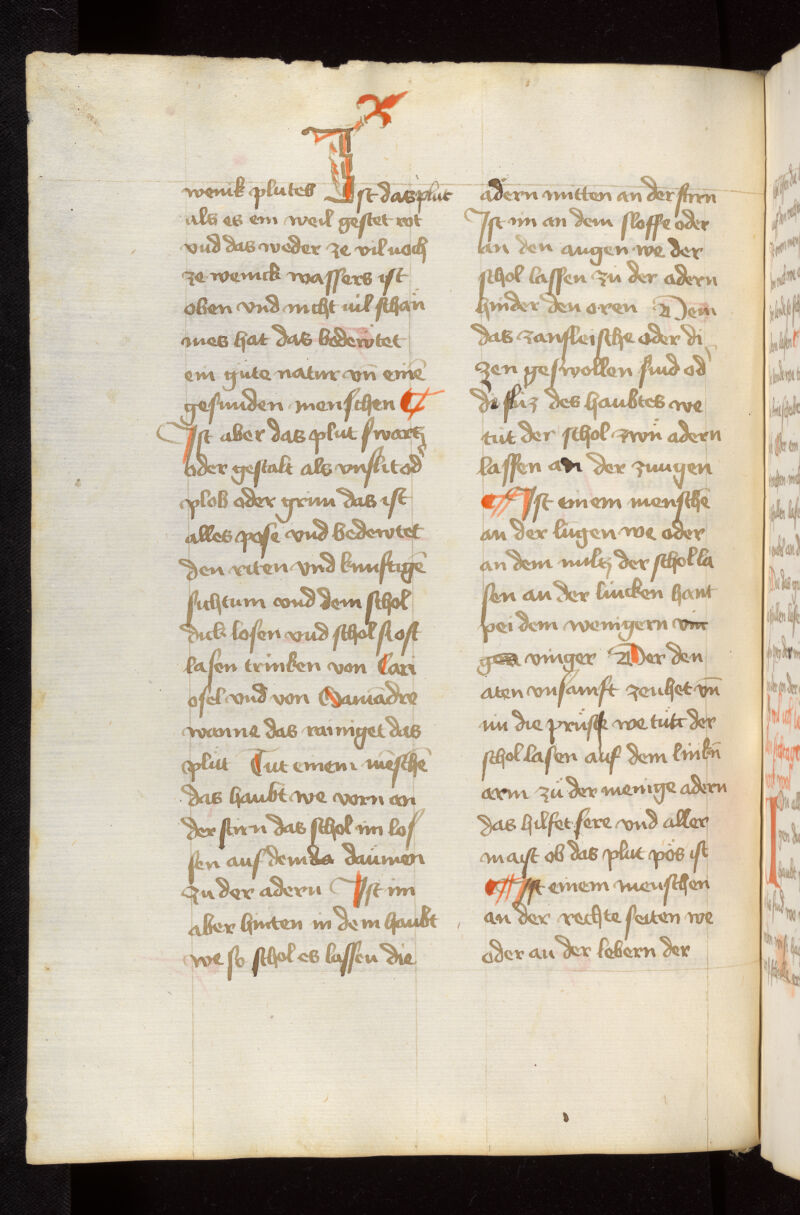 wenik plutes Ist das plut
als es ein weil gestet rot
vnd das weder ze vil noch
ze wenick wassers ist
oben vnd nicht uil schau
mes hat das bedewtet
ein gute natur vn̄ einē
gesunden menschen
Ist aber das plut swartz
oder gestalt als vnslit od̕
plob oder grun das ist
alles pose vnd bedewtet
den riten vnd kunftigē
sichtum vnd dem schol
dick losen vnd schol si oft
lasen trinken von Cari
osel vnd von Gamādre
wanne das rainiget das
plut Tut einem mēschē
das haubt we vorn an
der stirn das schol im los
sen auf dem daumen
zu der adern Ist im
aber hinten in dem haubt
we so schol es lassen die
adern mitten an der stirn
Ist im an dem sloffe oder
an den augen we der
schol lassen zu der adern
hinder den oren Dem
das zanfleische oder di
zen geswollen sind od̕
di fluz des haubtes we
tut der schol zwu adern
lassen an der zungen
Ist einem menschē
an der lugen we oder
an dem miltz der schol la
sen an der lincken hant
pei dem wenigern
vinger Der den
aten vnsamft zeuhet vn̄
im die prust we tut der
schol lasen auf dem linkn̄
arm zu der menige adern
das hilfet sere vnd aller
maist ob das plut pos ist
Ist einem menschen
an der rechte seiten we
oder an der lebern der